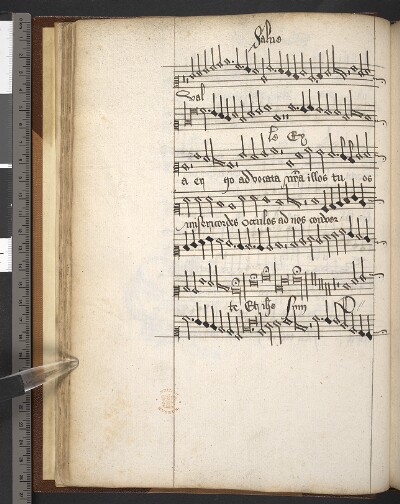 Salue
Sal
Ex
a ergo advocata nr̃a illos tu os
misericordes oculos ad nos conver
te Et ihs